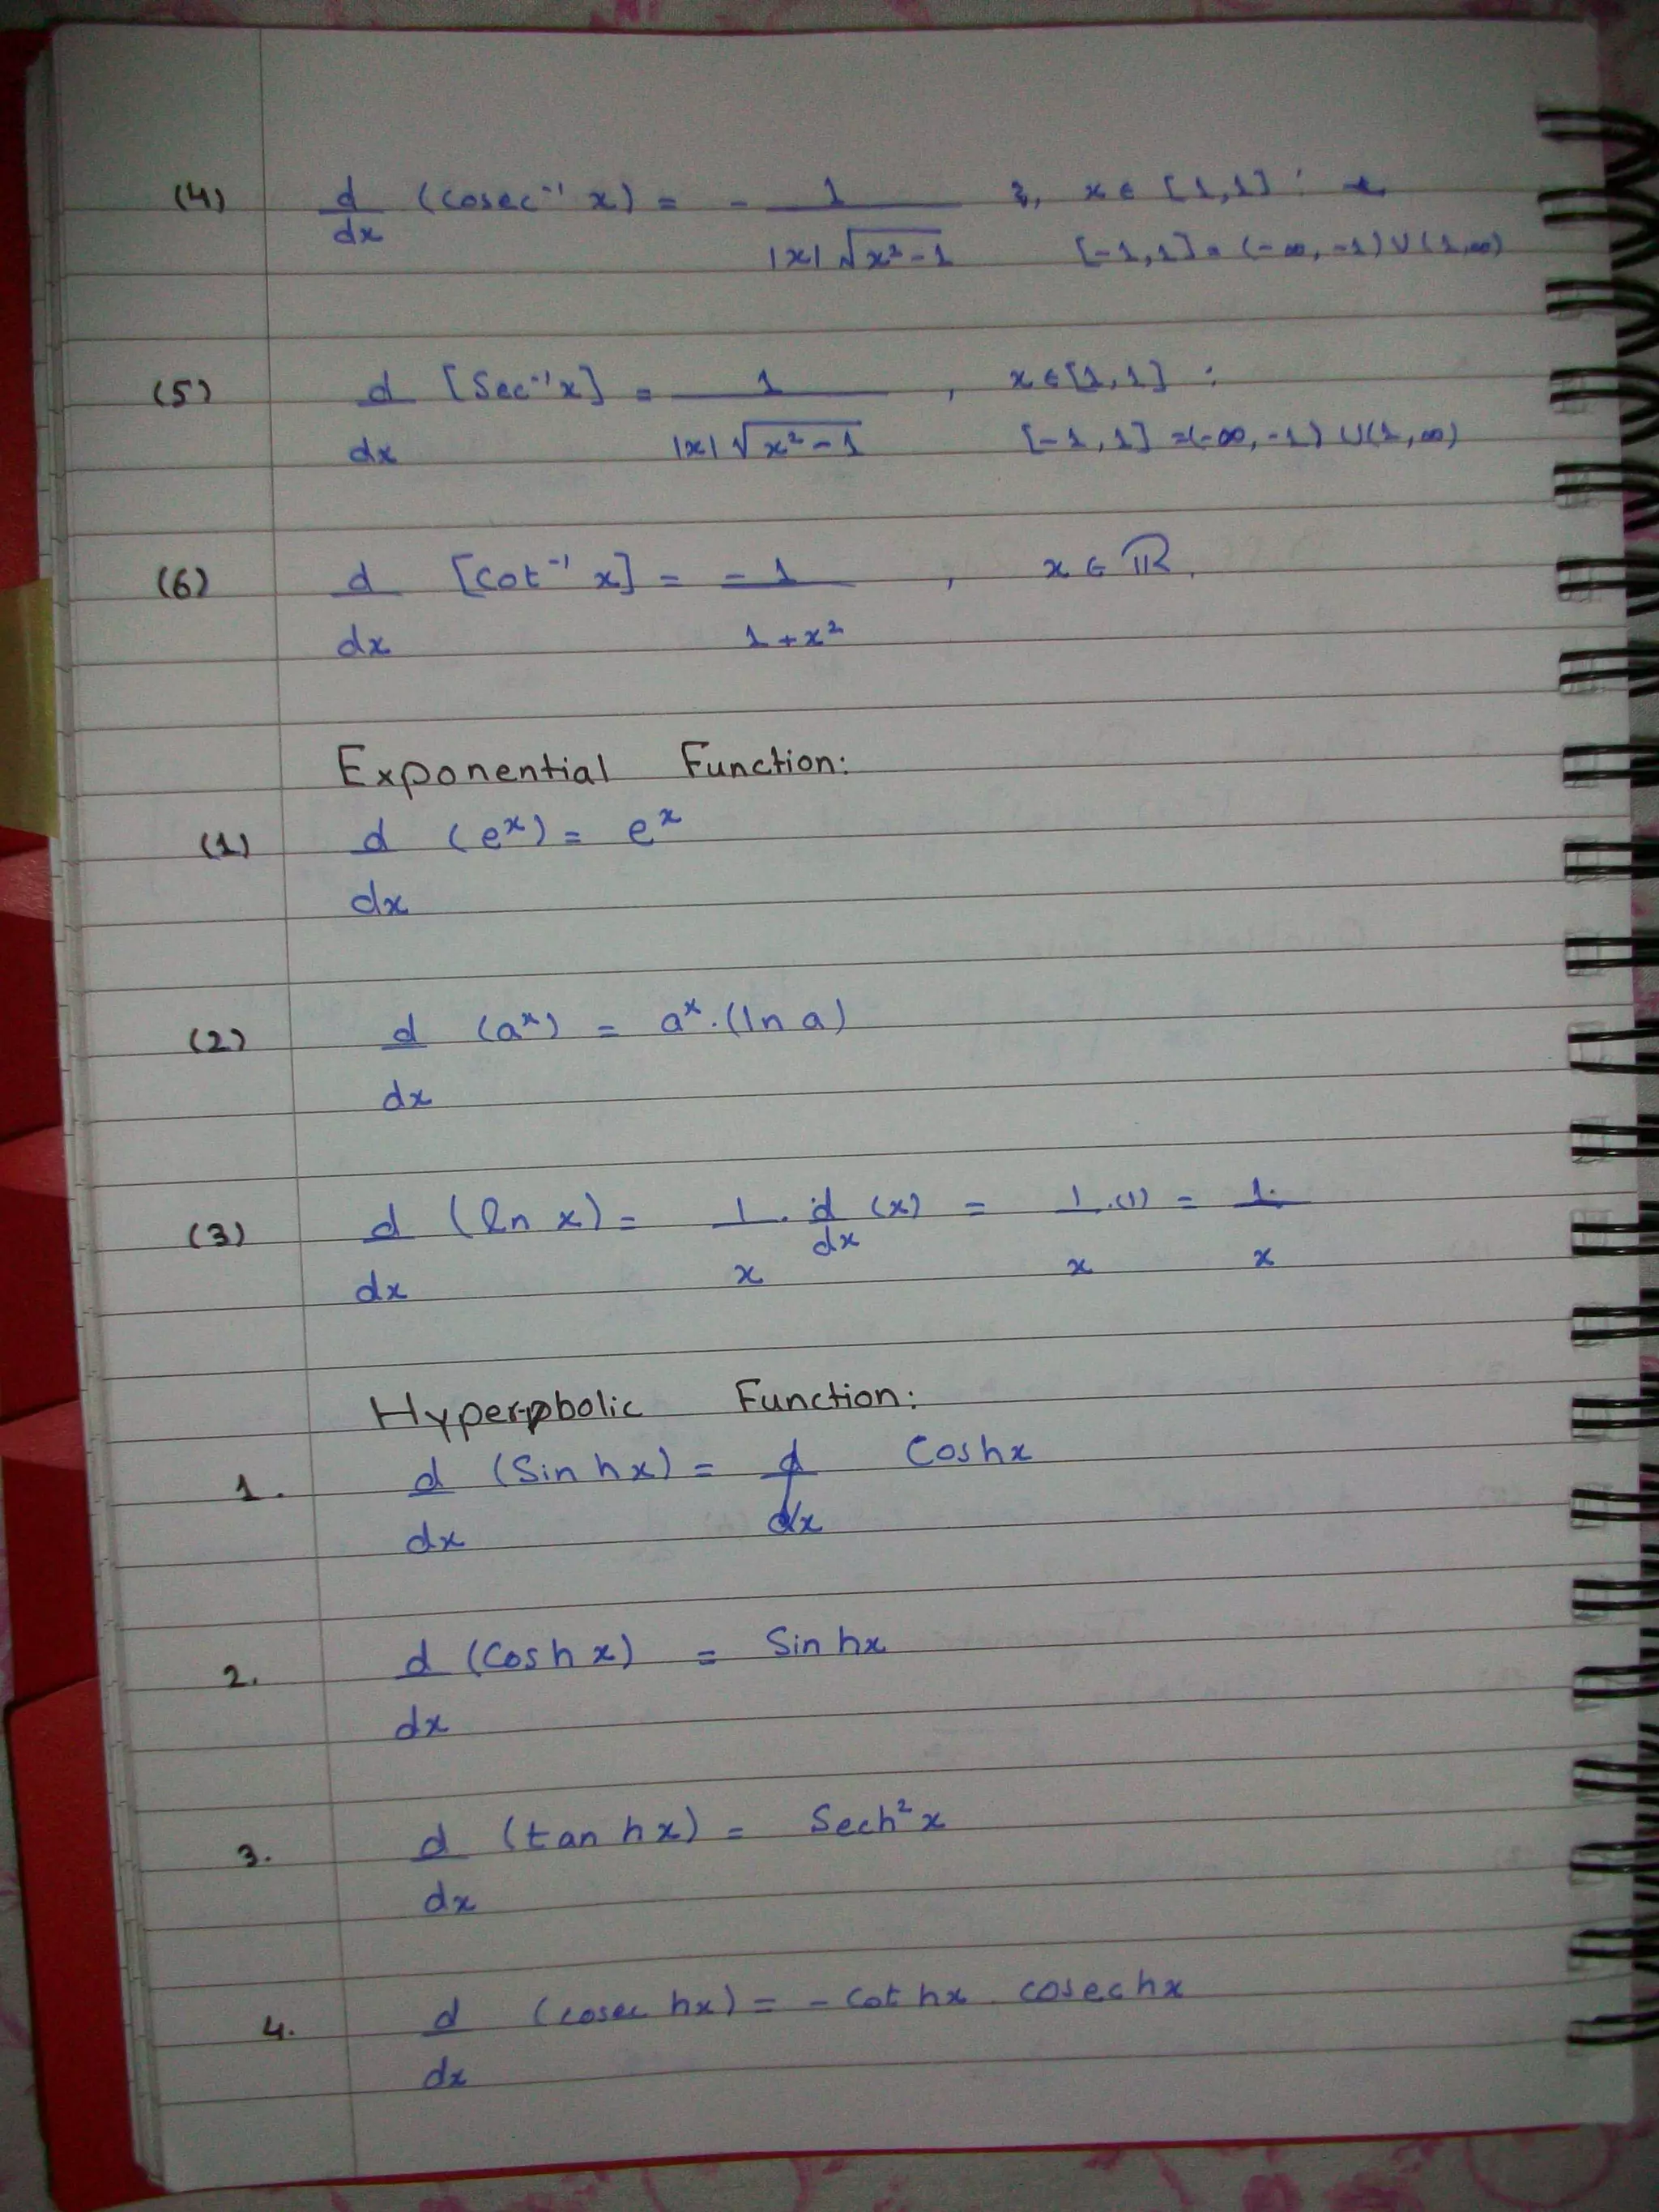 (4) d/dx (cosec⁻¹ x) = - 1/|x|√x²-1 , x ∈ [1,1] :
[-1,1] = (-∞,-1) ∪ (1,∞)
(5) d/dx [Sec⁻¹x] = 1/|x|√x²-1 , x ∈ [1,1] :
[-1,1] = (-∞,-1) ∪ (1,∞)
(6) d/dx [Cot⁻¹ x] = -1/1+x² , x ∈ ℝ.
Exponential Function:
(1) d/dx (eˣ) = eˣ
(2) d/dx (aˣ) = aˣ.(ln a)
(3) d/dx (ln x) = 1/x . d/dx (x) = 1/x .(1) = 1/x
Hyperbolic Function:
1. d/dx (Sin hx) = Coshx
2. d/dx (Cosh x) = Sin hx
3. d/dx (tan hx) = Sech²x
4. d/dx (cosec hx) = - Cot hx . cosec hx